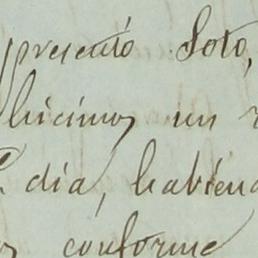 presentó Soto,
hicimos un
dia, habiend
conforme